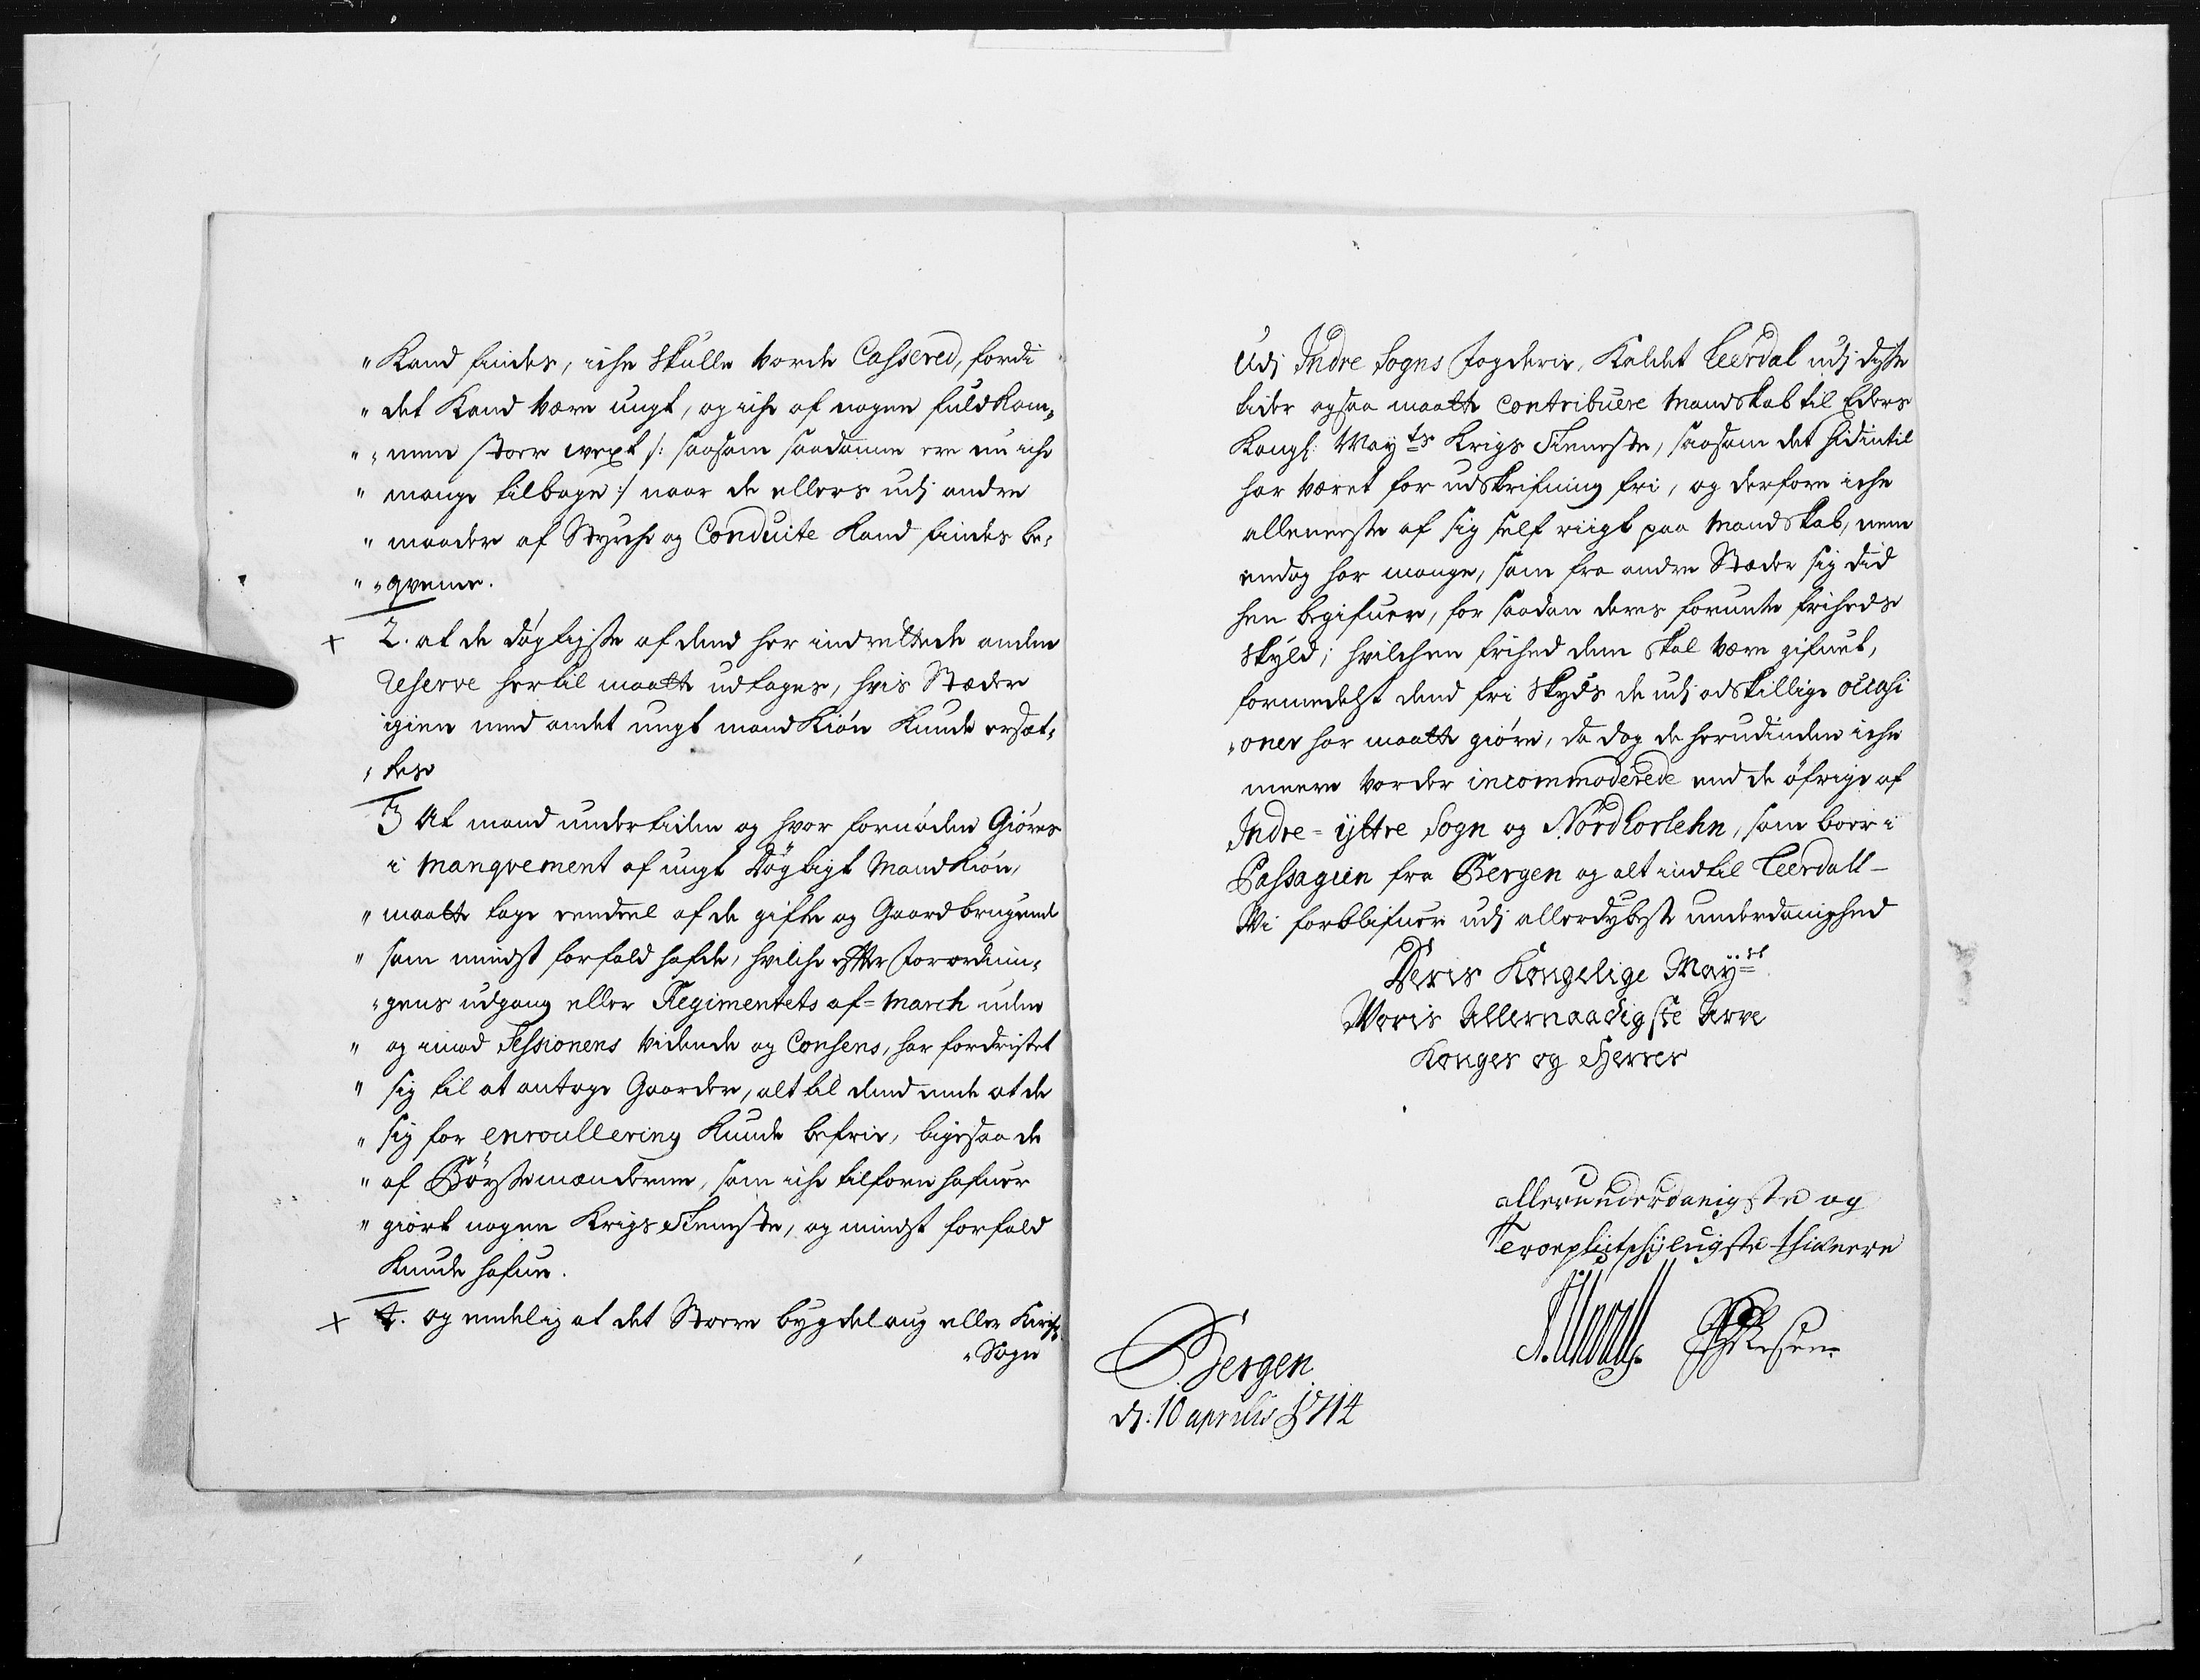 " Kand findes, iche skulle vorde Cassered, fordi
" det Kand være ungt, og iche af nogen fuldkom„
" „ men stoer wext /: saasom saadanne ere nu iche
" mange tilbage :/ naar de ellers udj andre
" maader af Styrche og Conduite Kand findes be„
" „ qveme.
+ 2. at de døgtigste af dend her indrettede anden
Reserve hertil maatte udtages, hvis Stæder
igien med andet ungt mandkiøn kunde ersæt„
„ tes
3 At mand undertiden og hvor fornøden Giøres
i Manqvement af ungt Døgtigt Mandkiøn,
" maatte tage eendeel af de gifte og Gaardbrugende
" som mindst forfald hafde, hvilche efter Forordnin„
" gens udgang eller Regimentets af=March uden
" og imod Sessionens vidende og Consens, har fordristet
" sig til at antage Gaarder, alt til dend ende at de
" sig for enroullering kunde befrie, ligesaa de
" af Bøyttemænderne, som iche tilforn hafuer
" giort nogen Krigs Tieneste, og mindst forfald
Kunde hafue.
+ 4. og endelig at det Stoere bygdelaug eller Kirche
„ Sogn
Udj Indre Sogns Fogderie, Kaldet Leerdal udj disse
tider ogsaa maatte contribuere Mandskab til Eders
Kongl: Mayts Krigs Tieneste, saasom det hidindtil
har været for udskrifning fri, og derfore iche
alleneeste af sig self riigt paa Mandskab, men
endog har mange, som fra andre Stæder sig did
hen begifuer, for saadan deres forundte friheds
skyld; hvilchen frihed dem skal være gifuet,
formedelst dend fri skyds de udj adskillige occasi
„ oner har maatte giøre, da dog de herudinden iche
meere vorder incommoderede end de øfrige af
Indre=ÿttre Sogn og Nordhorlehn, som boer i
Passagien fra Bergen og alt indtil Leerdall –
Vi forblifuer udj allerdybeste underdanighed
Deris Kongelige Mayst
Voris Allernaadigste Arve
Konges og Herres
allerunderdanigste og
Troepligtschyldigste thienere
Bergen
dj: 10 aprilis 1714